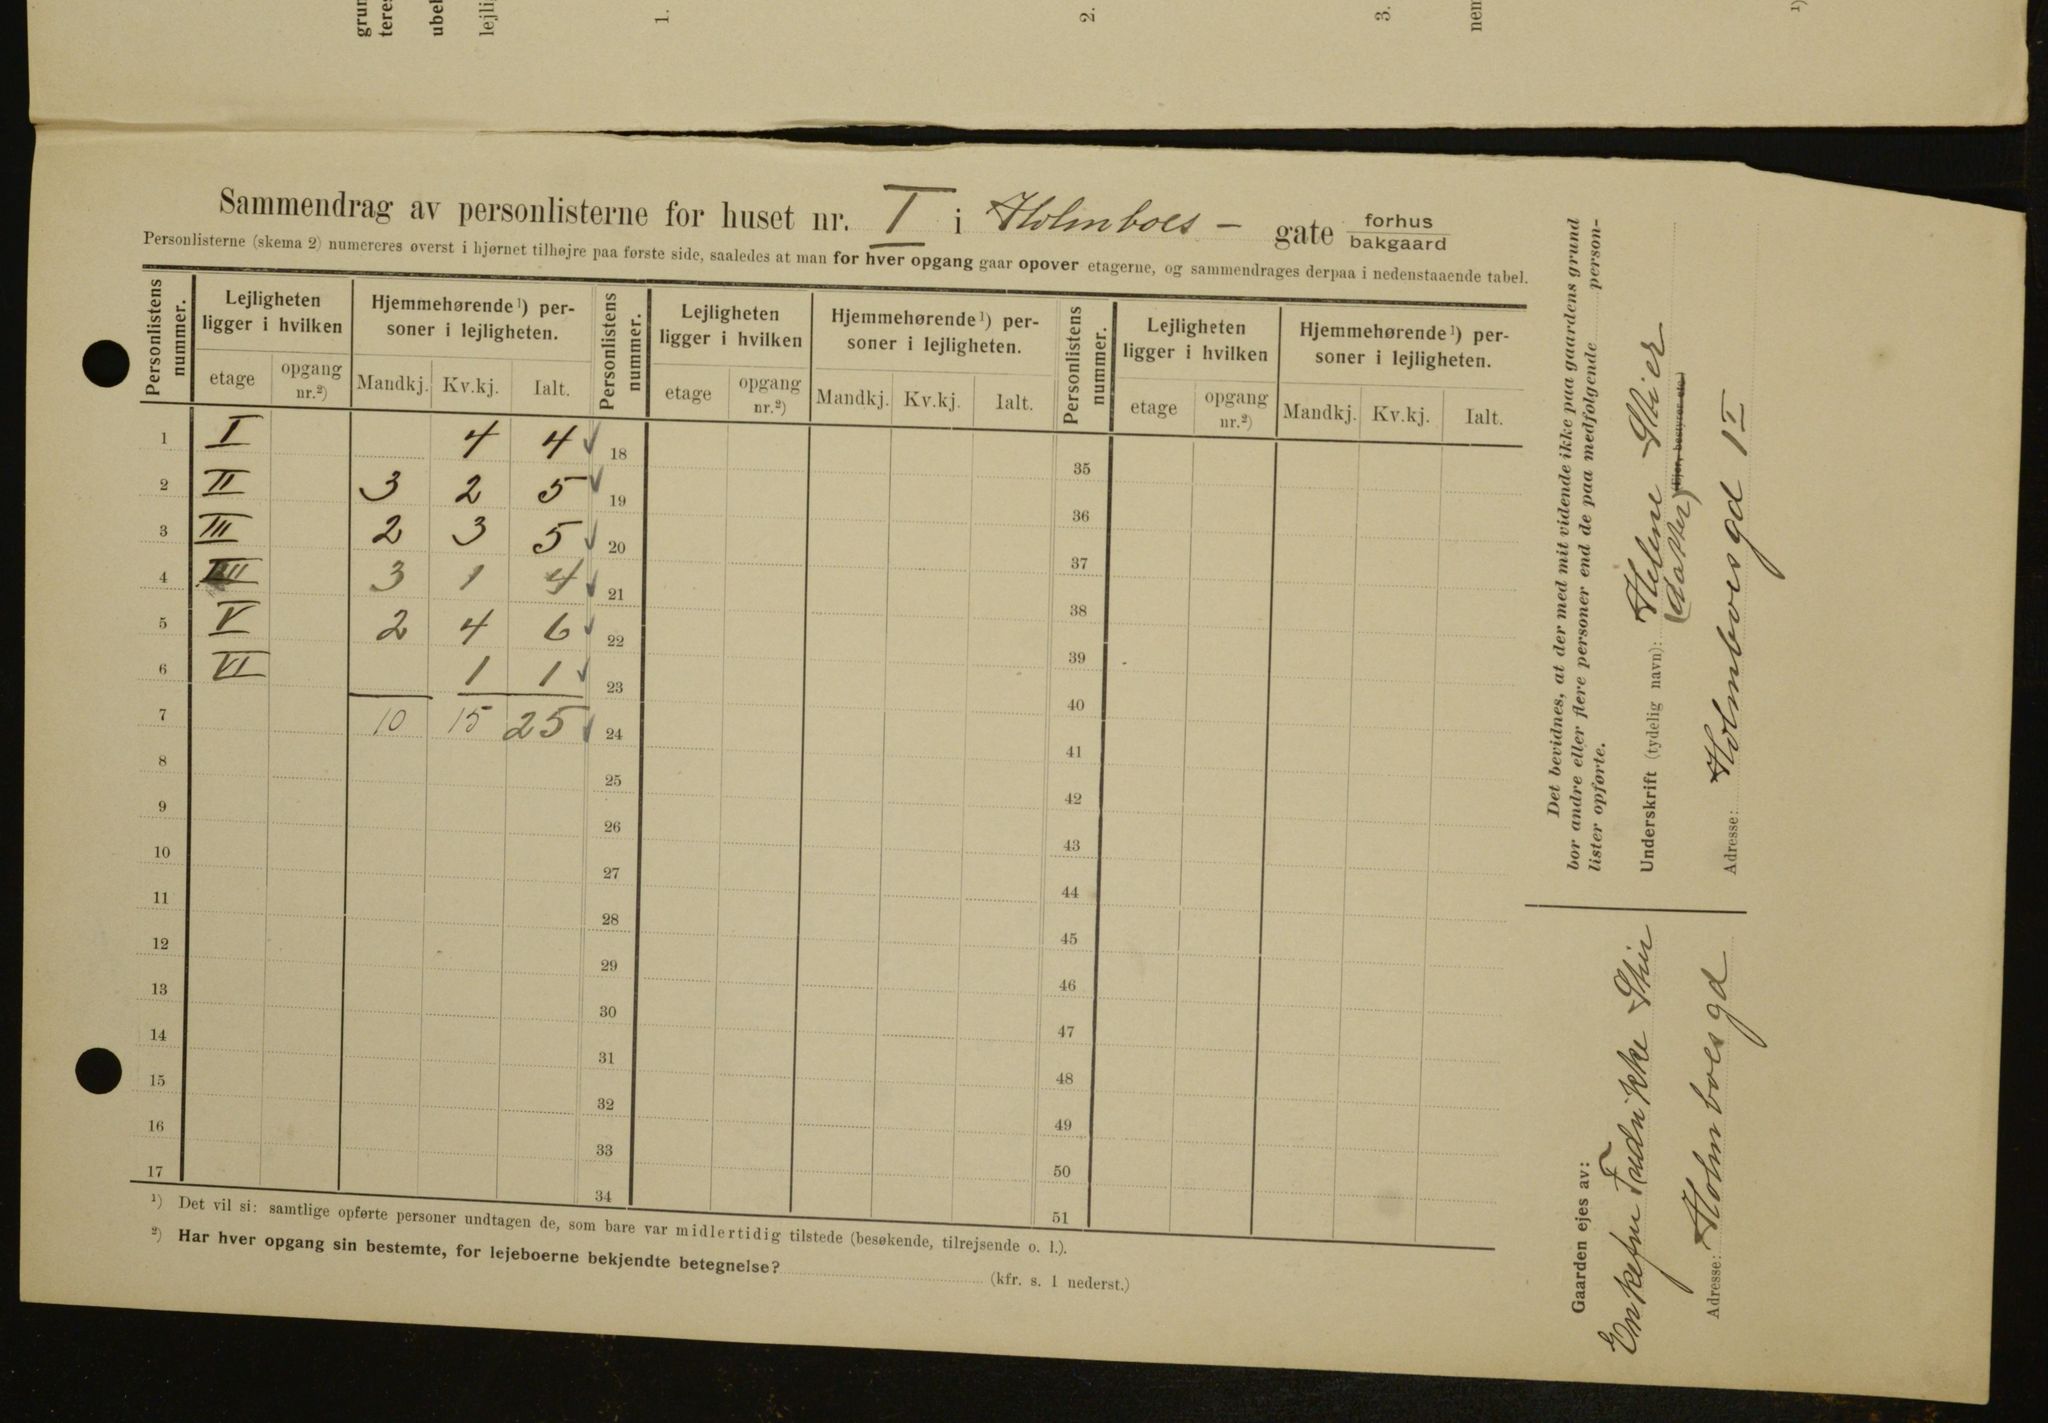 grun
teres
ubel
lejli
1.
2.
3.
nem
¹)
Sammendrag av personlisterne for huset nr. I i Holmboes – gate forhus
bakgaard
Personlisterne (skema 2) numereres øverst i hjørnet tilhøjre paa første side, saaledes at man for hver opgang gaar opover etagerne, og sammendrages derpaa i nedenstaaende tabel.
Personlistens nummer. Lejligheten ligger i hvilken Hjemmehørende¹) personer i lejligheten. Personlistens nummer. Lejligheten ligger i hvilken Hjemmehørende¹) personer i lejligheten. Personlistens nummer. Lejligheten ligger i hvilken Hjemmehørende¹) personer i lejligheten.
etage opgang nr.²) Mandkj. Kv.kj. Ialt. etage opgang nr.²) Mandkj. Kv.kj. Ialt. etage opgang nr.²) Mandkj. Kv.kj. Ialt.
1 I 4 4 ✓ 18 35
2 II 3 2 5 ✓ 19 36
3 III 2 3 5 ✓ 20 37
4 3 1 4 ✓ 21 38
5 V 2 4 6 ✓ 22 39
6 VI 1 1 ✓ 23 40
7 10 15 25 ✓ 24 41
8 25 42
9 26 43
10 27 44
11 28 45
12 29 46
13 30 47
14 31 48
15 32 49
16 33 50
17 34 51
¹) Det vil si: samtlige opførte personer undtagen de, som bare var midlertidig tilstede (besøkende, tilrejsende o. l.).
²) Har hver opgang sin bestemte, for lejeboerne bekjendte betegnelse? (kfr. s. 1 nederst.)
Det bevidnes, at der med mit vidende ikke paa gaardens grund
bor andre eller flere personer end de paa medfølgende person-
lister opførte.
Underskrift (tydelig navn): Helene
(datter) (Ejer, bestyrer etc.)
Adresse: Holmboesgd 1 I
Gaarden ejes av:
Enkefru
Adresse: Holmboesgd